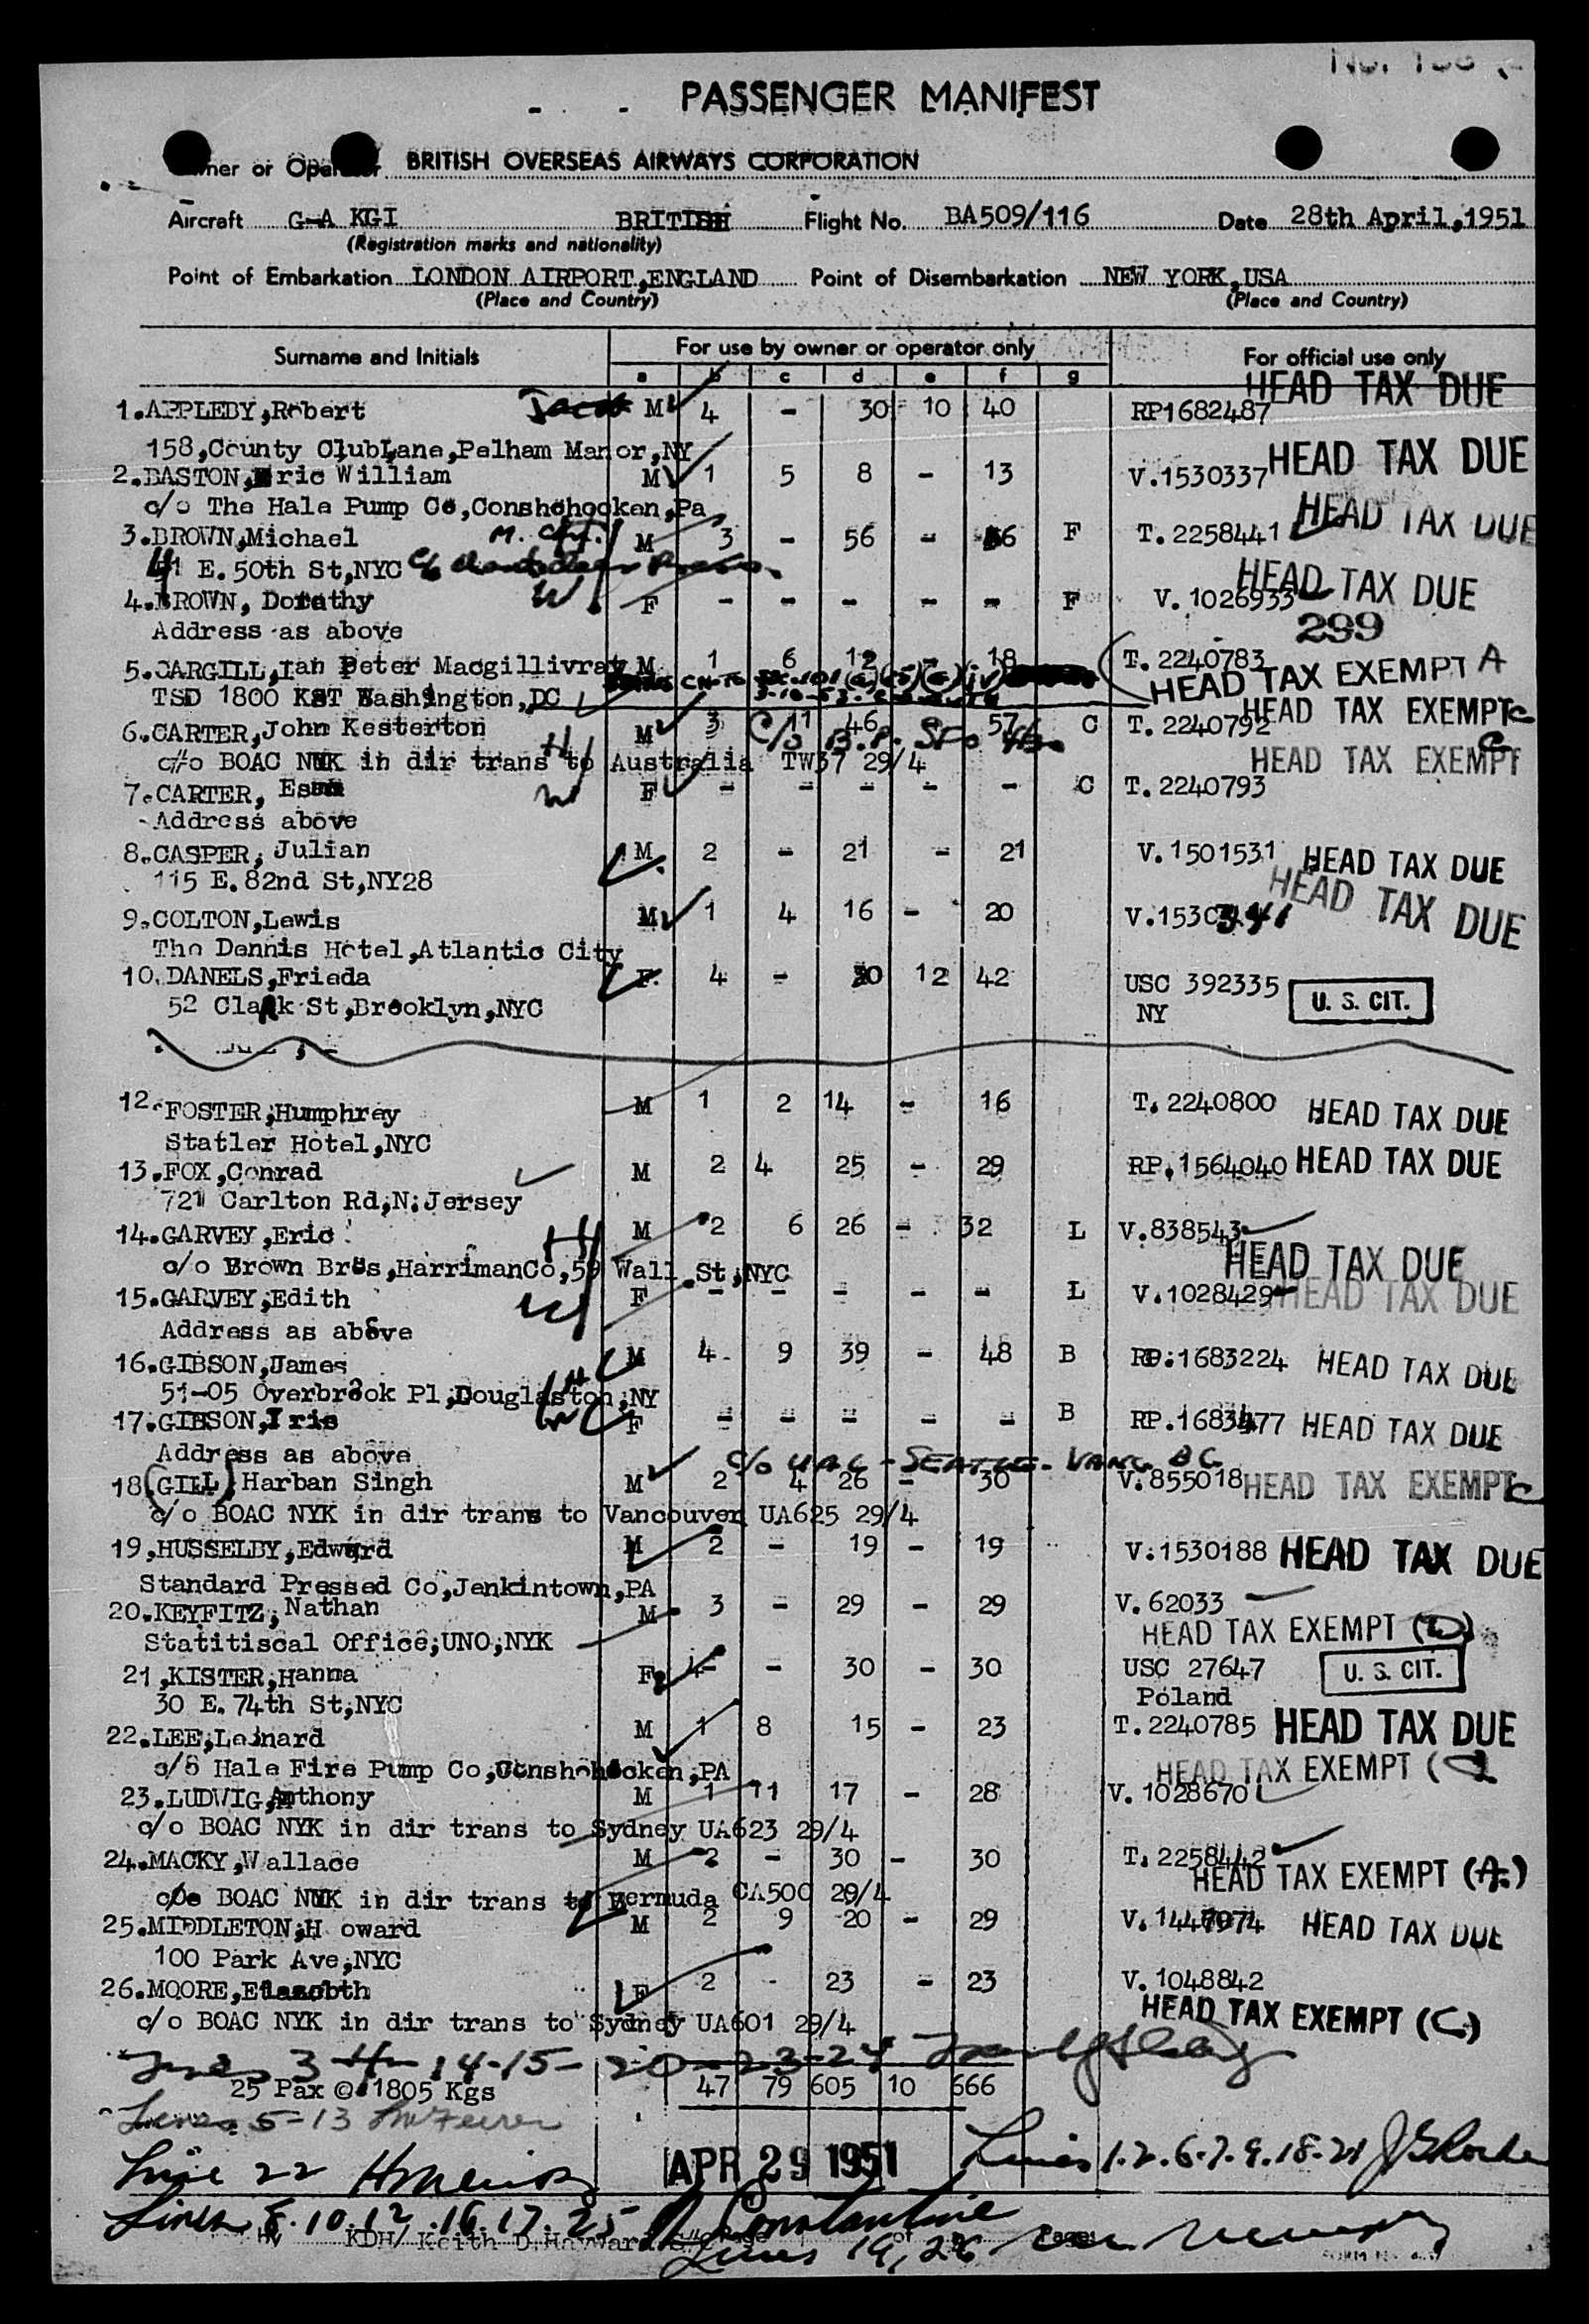 PASSENGER MANIFEST
BRITISH OVERSEAS AIRWAYS CORPORATION
Aircraft G-A KGI BRITISH Flight No. BA509/116 Date 28th April,1951
(Registration marks and nationality)
Point of Embarkation LONDON AIRPORT,ENGLAND Point of Disembarkation NEW YORK,USA
(Place and Country) (Place and Country)
Surname and Initials For use by owner or operator only For official use only
a b c d e f g
HEAD TAX DUE
1.APPLEBY,Robert Jacob M 4 - 30 10 40 RP1682487
158,County ClubLane,Pelham Manor,NY
2.BASTON,Eric William M 1 5 8 - 13 V.1530337 HEAD TAX DUE
c/o The Hale Pump Co,Conshohocken,Pa
3.BROWN,Michael M 3 - 56 - 56 F T.2258441 HEAD TAX DUE
41 E.50th St,NYC c/o
4.BROWN, Dorothy W F - - - - - F V.1026933 HEAD TAX DUE
Address as above 299
5.CARGILL,Ian Peter Macgillivray M 1 6 12 - 18 T.2240783 HEAD TAX EXEMPT A
TSD 1800 K ST Washington,DC
6.CARTER,John Kesterton H M 3 11 46 57 C T.2240792 HEAD TAX EXEMPT C
c/o BOAC NYK in dir trans to Australia TW37 29/4 HEAD TAX EXEMPT C
7.CARTER, W F - - - - - C T.2240793
Address above
8.CASPER, Julian M 2 - 21 - 21 V.1501531 HEAD TAX DUE
115 E.82nd St,NY28
9.COLTON,Lewis M 1 4 16 - 20 V.1530341 HEAD TAX DUE
The Dennis Hotel,Atlantic City
10.DANELS,Frieda F. 4 - 30 12 42 USC 392335 U. S. CIT.
52 Clark St,Brooklyn,NYC NY
12.FOSTER,Humphrey M 1 2 14 - 16 T.2240800 HEAD TAX DUE
Statler Hotel,NYC
13.FOX,Conrad M 2 4 25 - 29 RP.1564040 HEAD TAX DUE
721 Carlton Rd,N.Jersey
14.GARVEY,Eric H M 2 6 26 - 32 L V.838543 HEAD TAX DUE
c/o Brown Bros,HarrimanCo,59 Wall St,NYC
15.GARVEY,Edith W F - - - - - L V.1028429 HEAD TAX DUE
Address as above
16.GIBSON,James H M 4 9 39 - 48 B RP.1683224 HEAD TAX DUE
51-05 Overbrook Pl,Douglaston,NY
17.GIBSON,Iris W F - - - - - B RP.1683477 HEAD TAX DUE
Address as above c/o UAL - SEATTLE - VANC BC
18(GILL) Harban Singh M 2 4 26 - 30 V.855018 HEAD TAX EXEMPT C
c/o BOAC NYK in dir trans to Vancouver UA625 29/4
19.HUSSELBY,Edward M 2 - 19 - 19 V.1530188 HEAD TAX DUE
Standard Pressed Co,Jenkintown,PA
20.KEYFITZ,Nathan M 3 - 29 - 29 V.62033
Statitiscal Office,UNO,NYK HEAD TAX EXEMPT (D)
21,KISTER,Hanna F 4 - 30 - 30 USC 27647 U. S. CIT.
30 E.74th St,NYC Poland
22.LEE,Leinard M 1 8 15 - 23 T.2240785 HEAD TAX DUE
c/o Hale Fire Pump Co,Conshohocken,PA HEAD TAX EXEMPT (C)
23.LUDWIG,Anthony M 1 11 17 - 28 V.1028670
c/o BOAC NYK in dir trans to Sydney UA623 29/4
24.MACKY,Wallace M 2 - 30 - 30 T.2258442 HEAD TAX EXEMPT (A.)
c/o BOAC NYK in dir trans to Bermuda CA500 29/4
25.MIDDLETON,H oward M 2 9 20 - 29 V.1447974 HEAD TAX DUE
100 Park Ave,NYC
26.MOORE, F 2 - 23 - 23 V.1048842
c/o BOAC NYK in dir trans to Sydney UA601 29/4 HEAD TAX EXEMPT (C)
Lines 3 4 14-15- 20-23-24
25 Pax @ 1805 Kgs 47 79 605 10 666
Lines 5-13
APR 29 1951 Lines 1.2.6.7.9.18.21
Line 22
Lines 8.10.12.16.17.25 Constantine
by KDH/ Keith D.Hayward Page of Pages
Lines 19,26